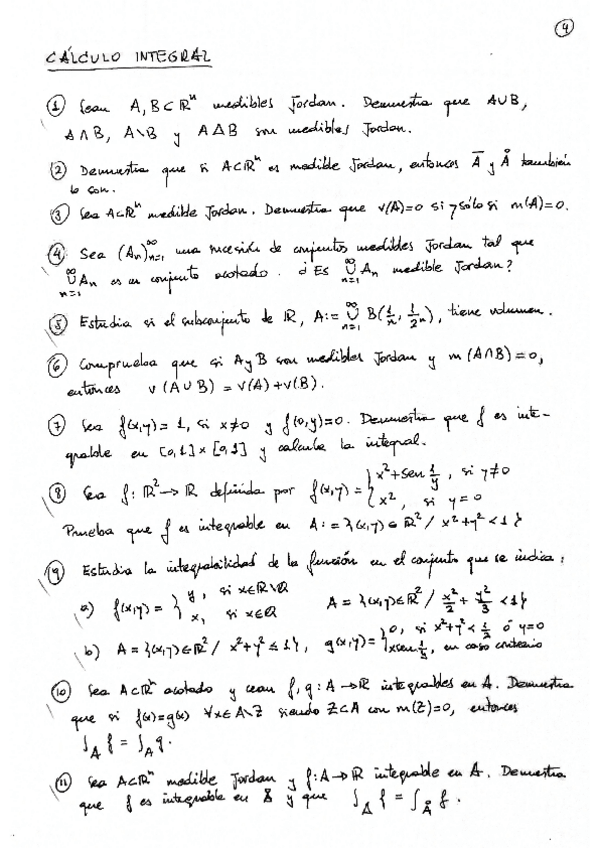 4
CÁLCULO INTEGRAL
① Sean A, B ⊂ ℝⁿ medibles Jordan. Demuestra que A∪B,
A∩B, A\B y A∆B son medibles Jordan.
② Demuestra que si A⊂ℝⁿ es medible Jordan, entonces A̅ y Å también
lo son.
③ Sea A⊂ℝⁿ medible Jordan. Demuestra que v(A)=0 si y sólo si m(A)=0.
④ Sea (Aₙ)ₙ₌₁^∞ una sucesión de conjuntos medibles Jordan tal que
∪ₙ₌₁^∞ Aₙ es un conjunto acotado. ¿Es ∪ₙ₌₁^∞ Aₙ medible Jordan?
⑤ Estudia si el subconjunto de ℝ, A := ∪ₙ₌₁^∞ B(1/n, 1/2ⁿ), tiene volumen.
⑥ Comprueba que si A y B son medibles Jordan y m(A∩B)=0,
entonces v(A∪B) = v(A)+v(B).
⑦ Sea f(x,y)=1, si x≠0 y f(0,y)=0. Demuestra que f es inte-
grable en [0,1]×[0,1] y calcula la integral.
⑧ Sea f: ℝ²→ℝ definida por f(x,y) = { x²+sen 1/y, si y≠0
x², si y=0
Prueba que f es integrable en A := {(x,y)∈ℝ² / x²+y²<1}
⑨ Estudia la integrabilidad de la función en el conjunto que se indica:
a) f(x,y) = { y, si x∈ℝ\ℚ
x, si x∈ℚ A = {(x,y)∈ℝ² / x²/2 + y²/3 <1}
b) A = {(x,y)∈ℝ² / x²+y² ≤ 1}, g(x,y) = { 0, si x²+y² < 1/2 ó y=0
x sen 1/y, en caso contrario
⑩ Sea A⊂ℝⁿ acotado y sean f, g: A→ℝ integrables en A. Demuestra
que si f(x)=g(x) ∀x∈A\Z siendo Z⊂A con m(Z)=0, entonces
∫_A f = ∫_A g.
⑪ Sea A⊂ℝⁿ medible Jordan y f: A→ℝ integrable en A. Demuestra
que f es integrable en Å y que ∫_A f = ∫_Å f.